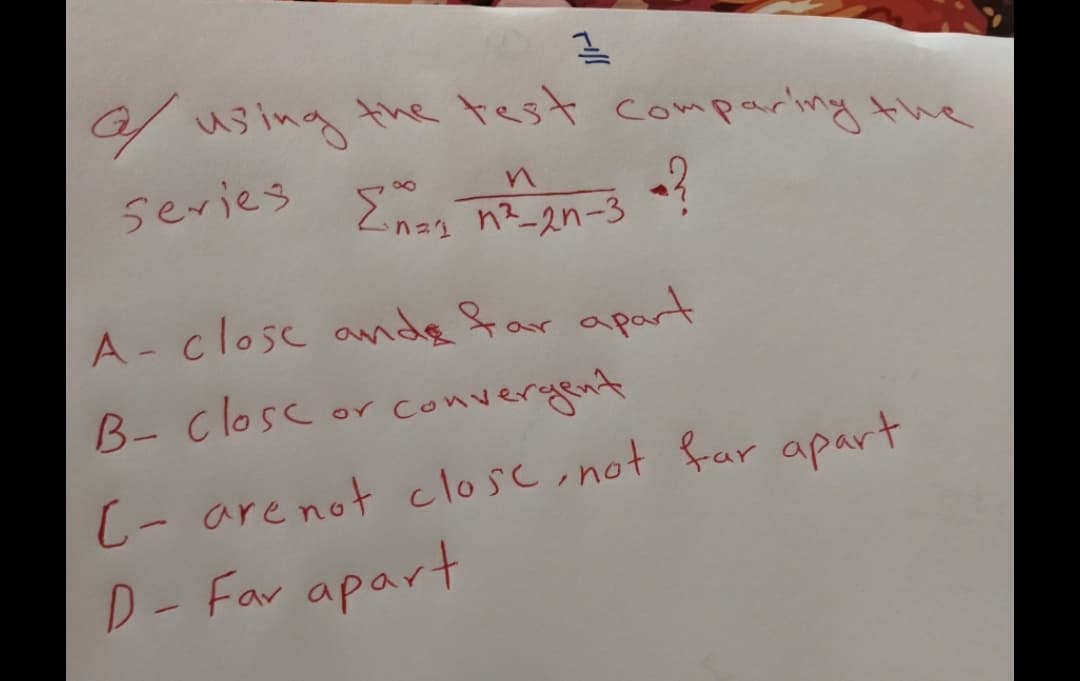 1
Q/ using the test comparing the
series ∑n=1^∞ n/(n²-2n-3) ?
A- close and far apart
B- close or convergent
C- are not close, not far apart
D- Far apart